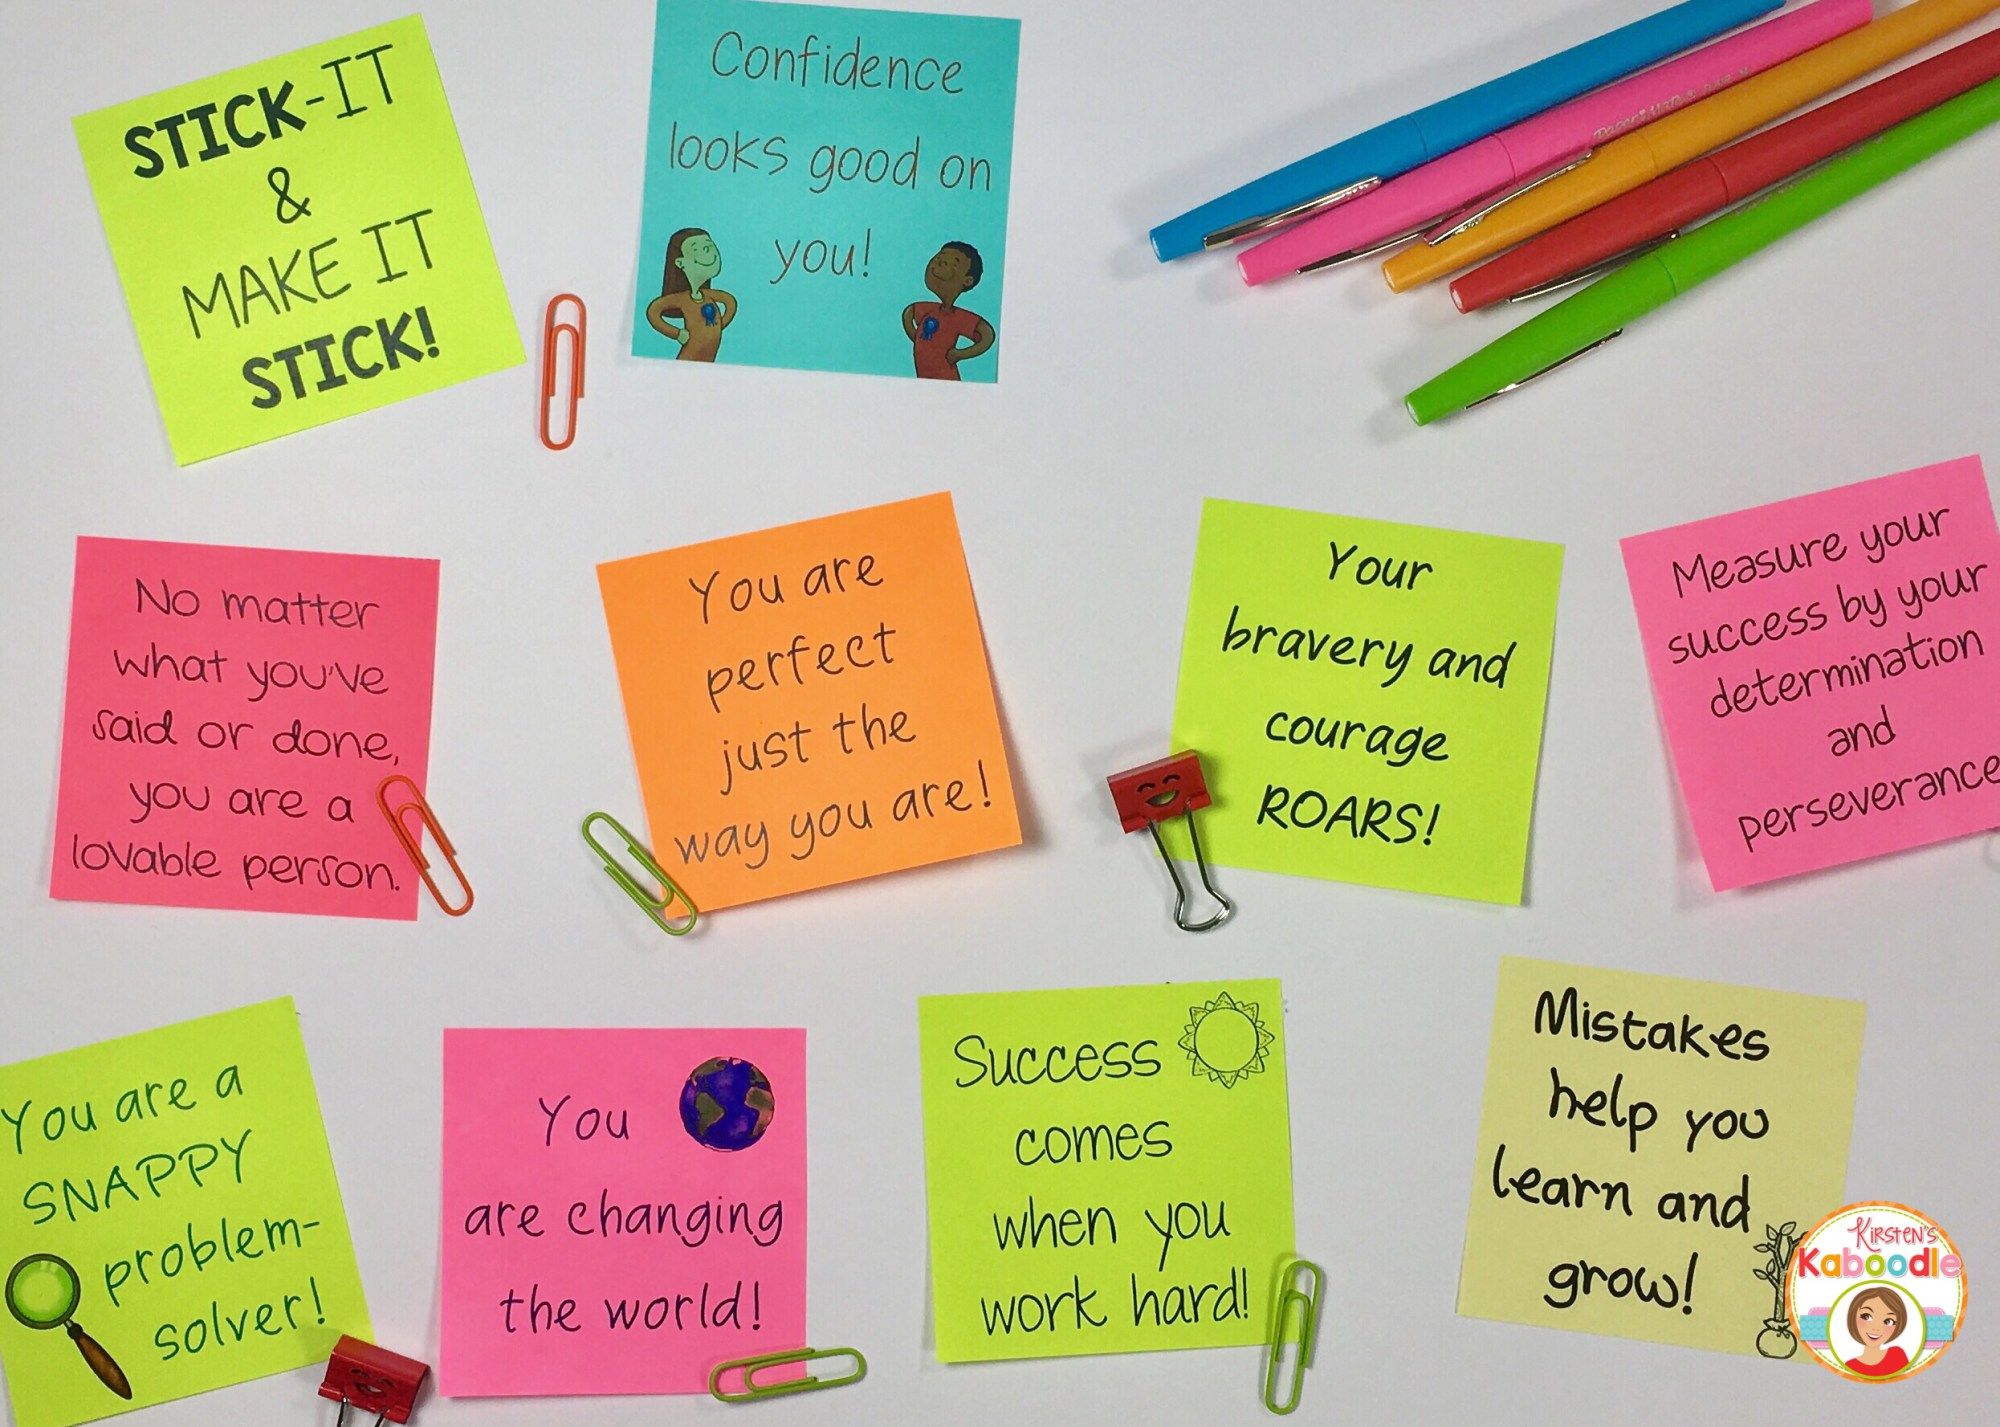 STICK-IT
&
MAKE IT
STICK!
Confidence
looks good on
you!
Paper Mate
No matter
what you've
said or done,
you are a
lovable person.
You are
perfect
just the
way you are!
Your
bravery and
courage
ROARS!
Measure your
success by your
determination
and
perseverance
You are a
SNAPPY
problem-
solver!
You
are changing
the world!
Success
comes
when you
work hard!
Mistakes
help you
learn and
grow!
KIRSTEN'S
Kaboodle